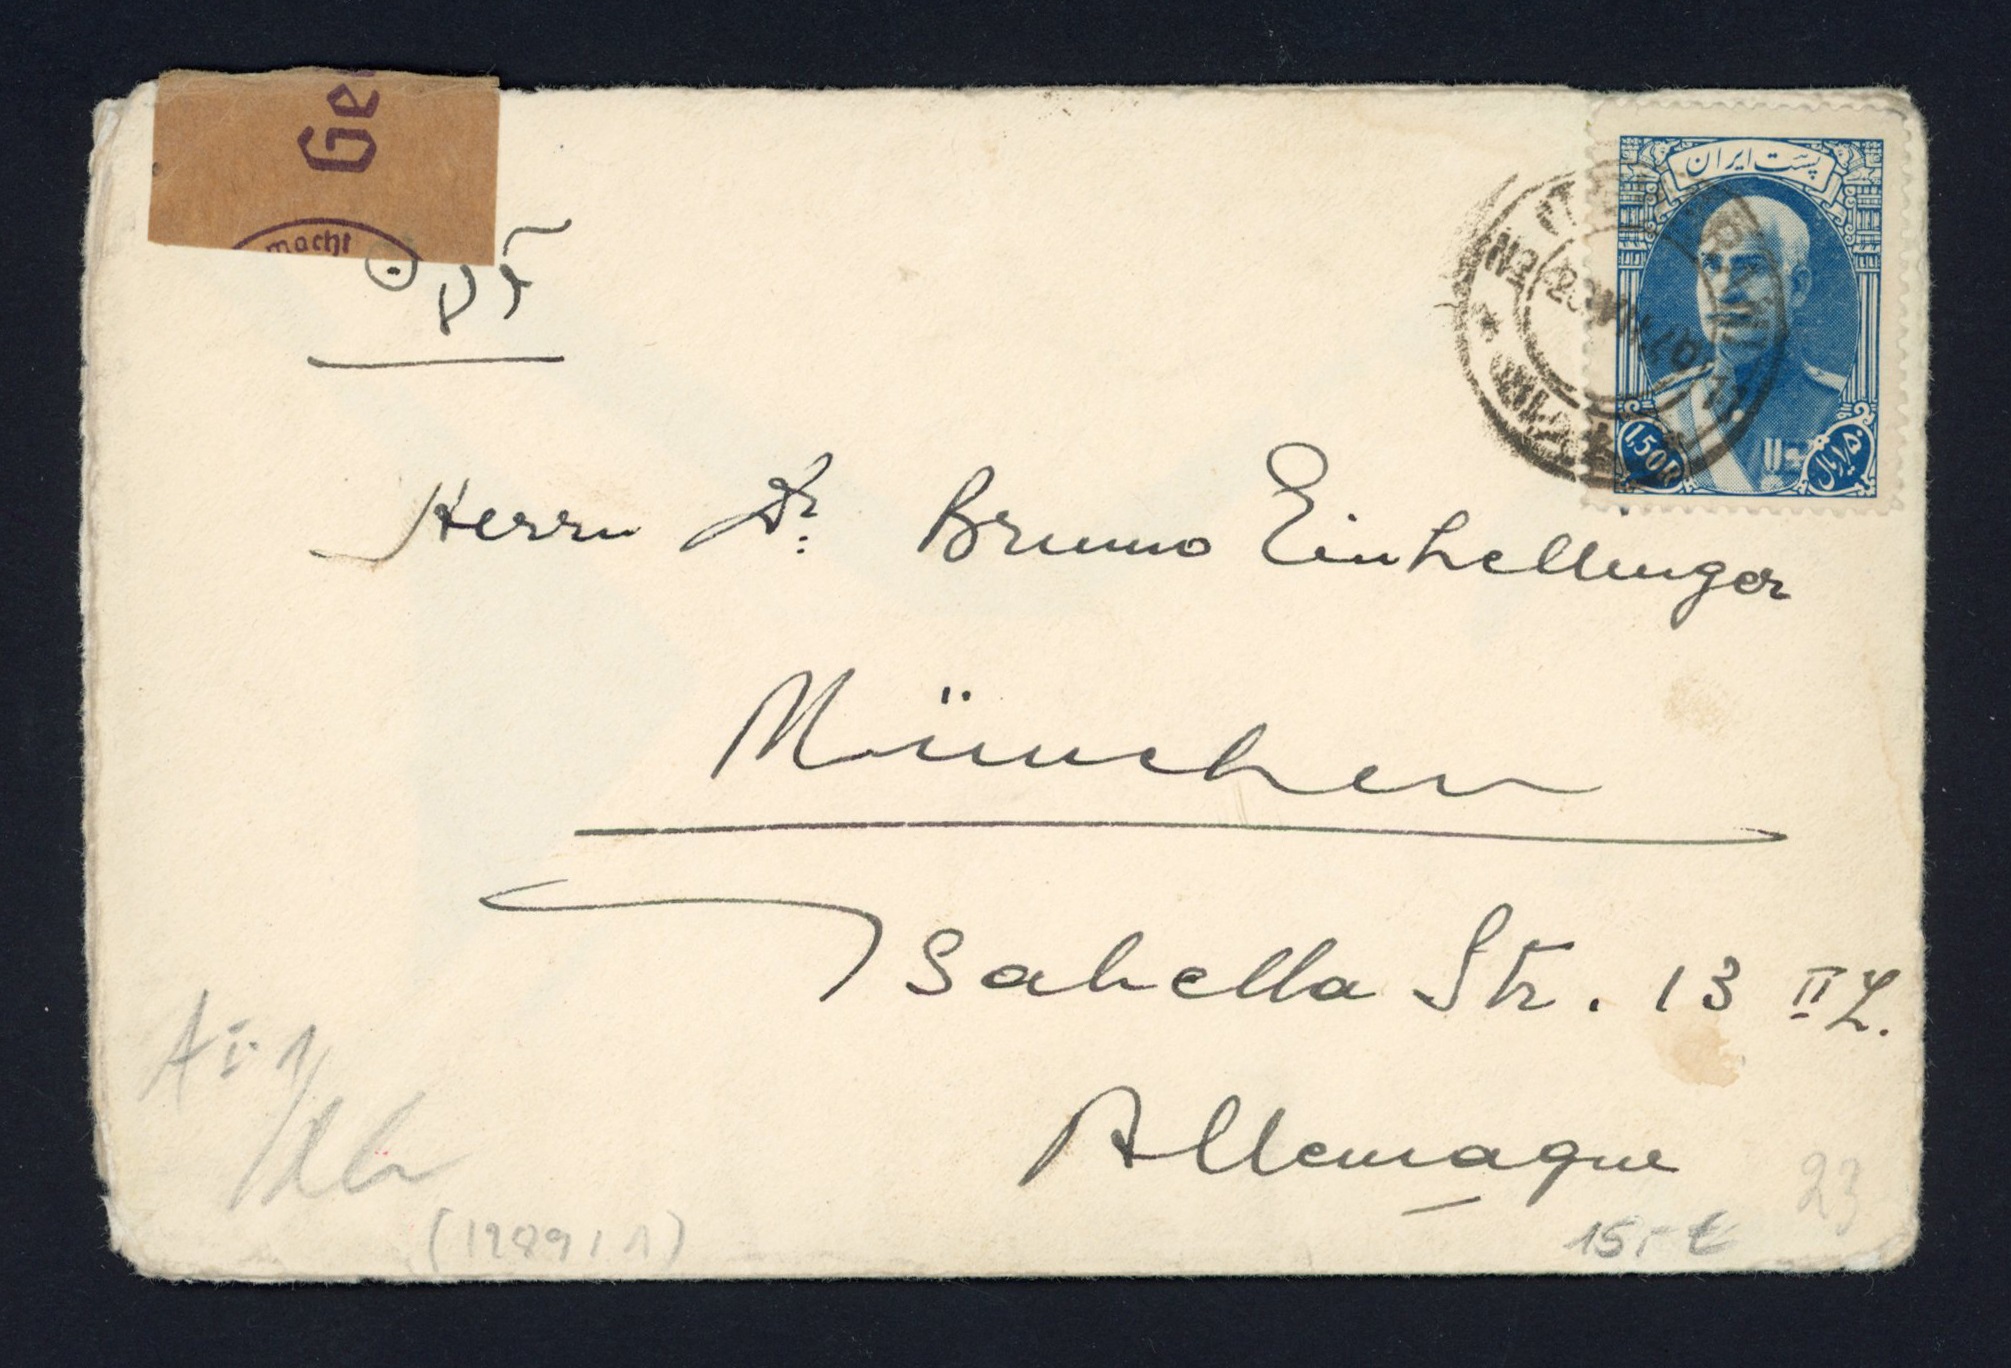 Ge
macht
پست ایران
1,50R
۱/۵۰ ریال
Herrn Dr. Bruno Einhellinger
München
Isabella Str. 13 II L.
Allemagne
23
15,- €
(12891 1)